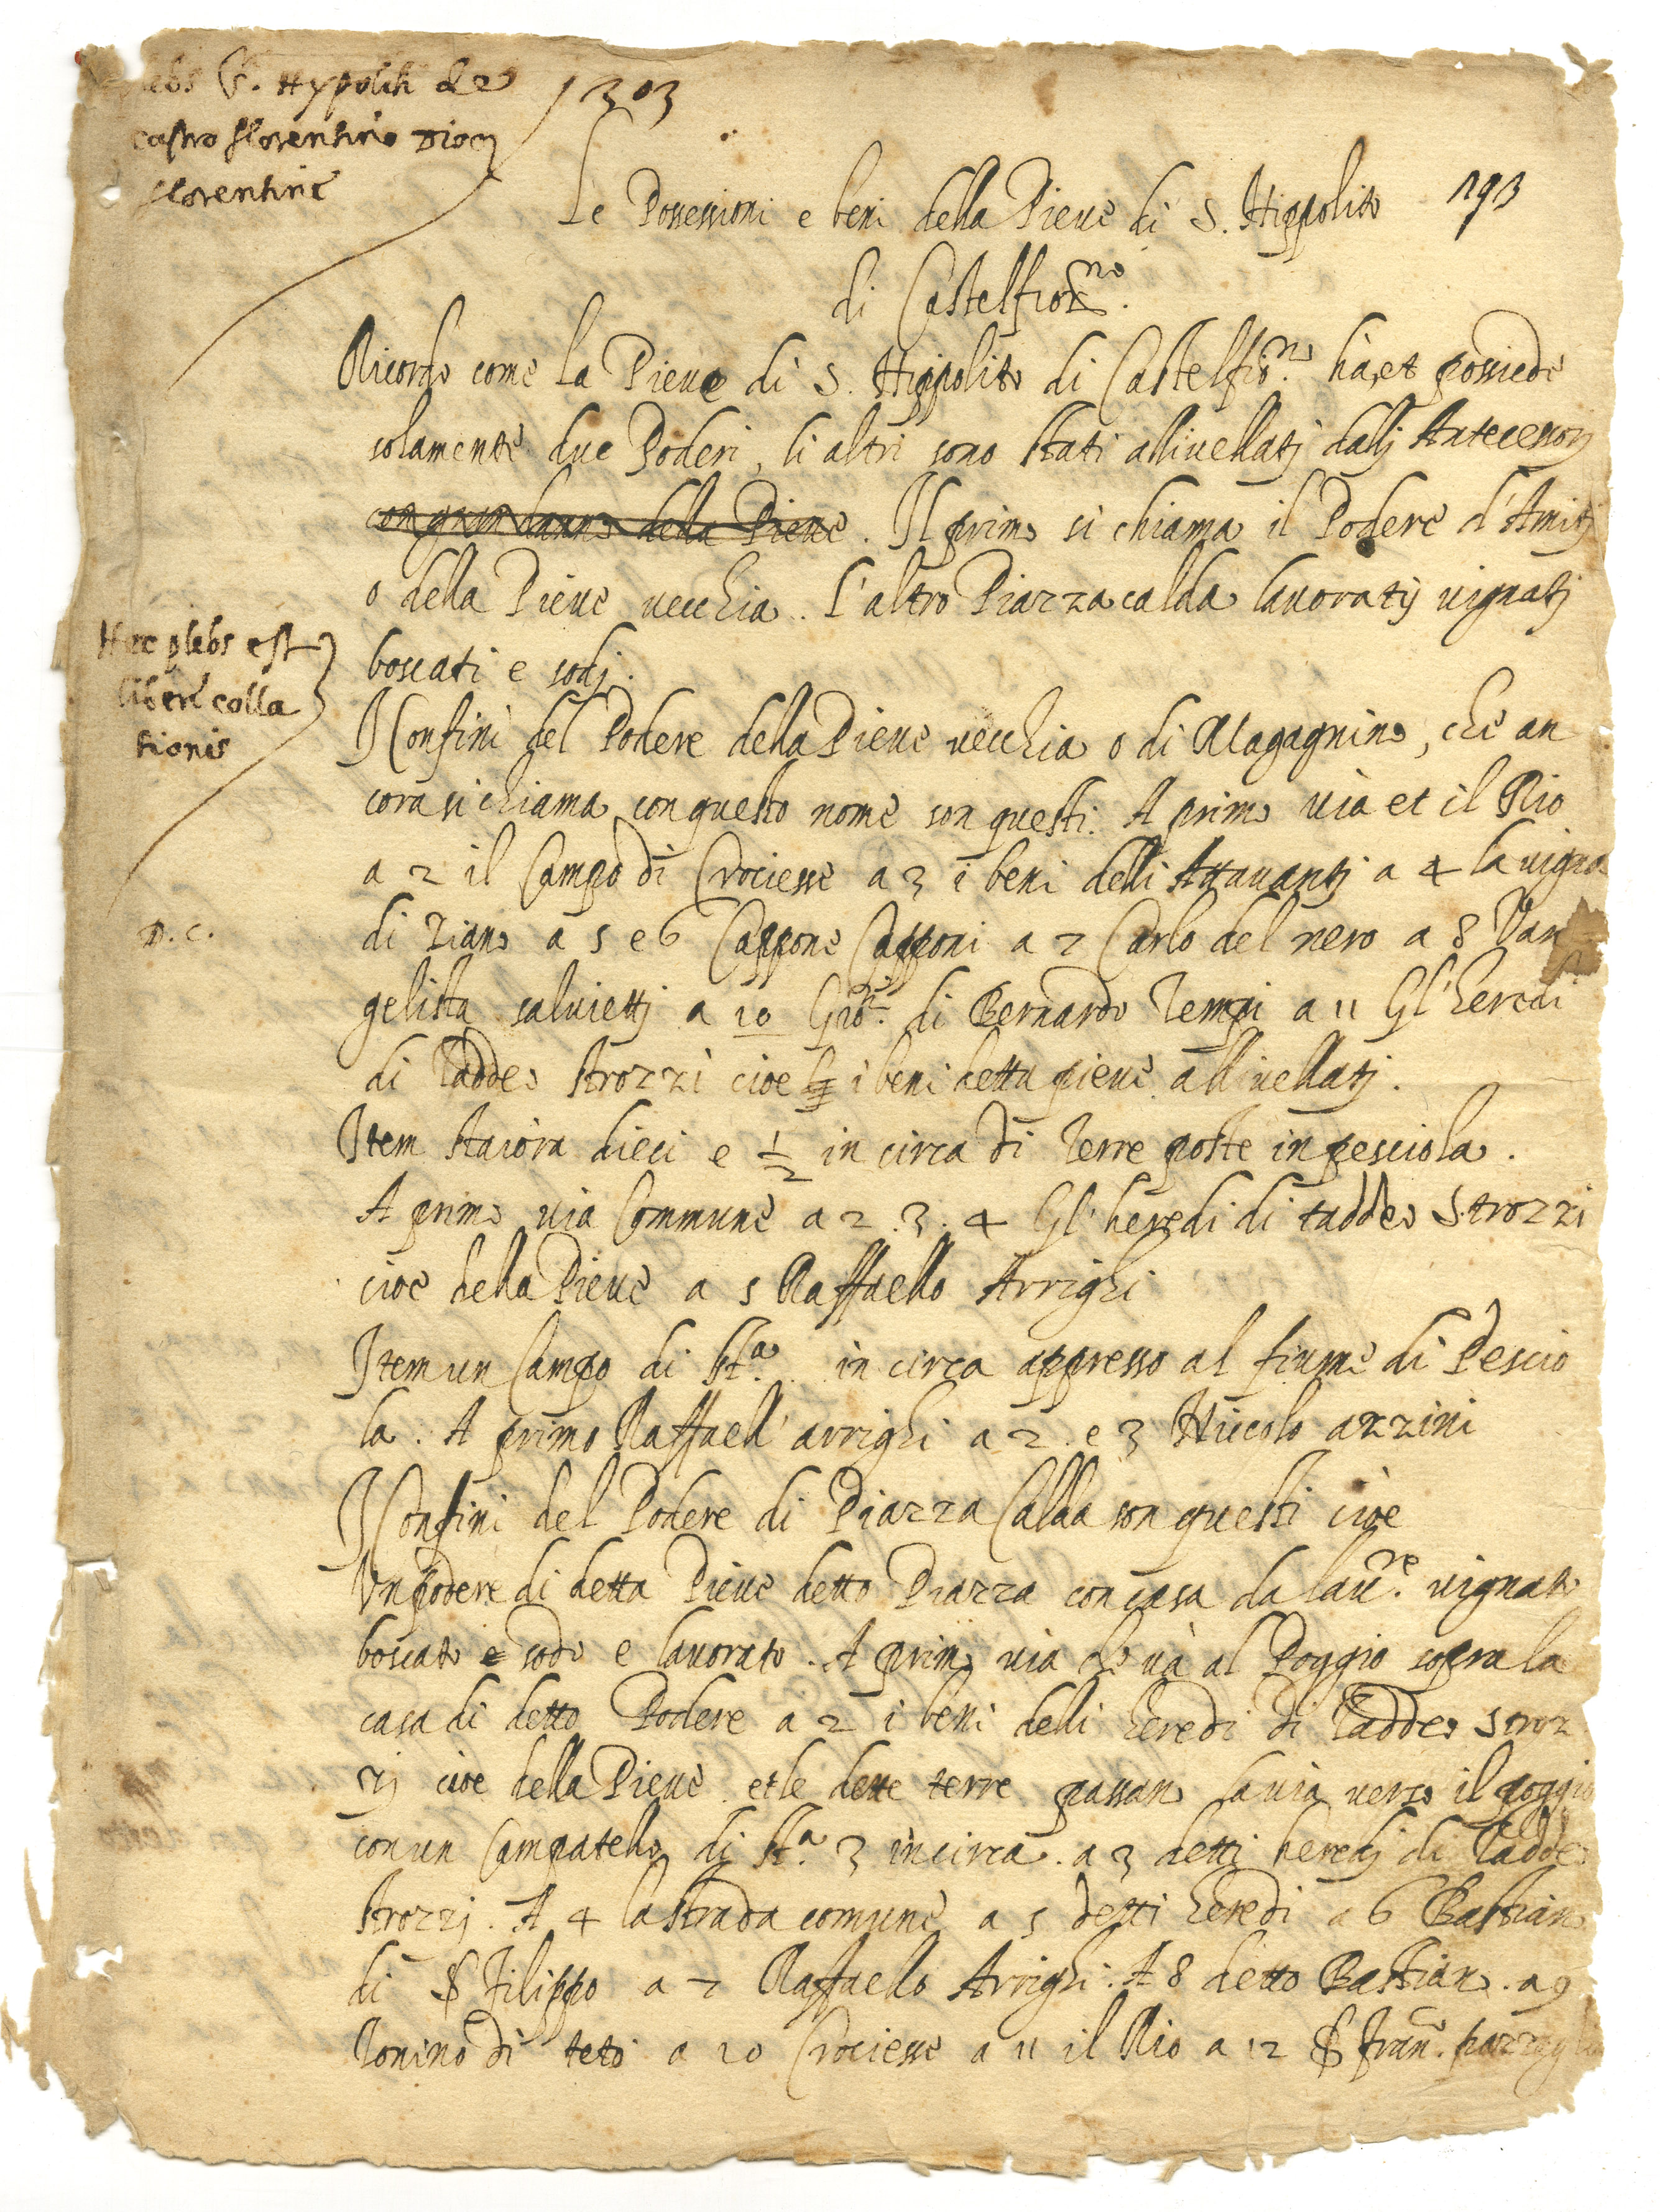 plebs S. Hypoliti de
castro florentino Dioc
florentine
1303
293
Le Possessioni e beni della Pieue di S. Hippolito
di Castelfior.no
Ricordo come la Pieue di S. Hippolito di Castelfio.no hà, et possiede
solamente due Poderi, li altri sono stati alliuellatj dallj Antecessorj
con gran danno della Pieue. Il primo si chiama il Podere d'
o della Pieue uecchia. L'altro Piazza calda lauoratij uignatj
boscati e sodj.
Hec plebs est
libere colla
tionis
I Confini del Podere della Pieue uecchia o di Magagnino, che an
cora si chiama con questo nome son questi. A primo uia et il Rio
a 2 il Campo di Crociesse a 3 i beni delli Attauantj a 4 la uigna
D. C.
di Ziano a 5 e 6 Cappone Capponi a 7 Carlo del nero a 8 Van
gelista saluiettj a 10 Gio. di Bernardo Tempi a 11 Gl'heredi
di Taddeo Strozzi cioe i beni detta pieue alliuellatj.
Item staiora dieci e 1/2 in circa di Terre poste in pesciola.
A primo uia Commune a 2. 3. 4 Gl'heredi di taddeo Strozzi
cioe della Pieue a 5 Raffaello Arrighi
Item un Campo di st.a in circa appresso al fiume di Pescio
la. A primo Raffaell' arrighi a 2. e 3 Niccolo azzini
I Confini del Podere di Piazza Calda son questi cioè
Un podere di detta Pieue detto Piazza con casa da lau.re uignato
boscato e sodo e lauorato. A primo uia che uà al Poggio sopra la
casa di detto Podere a 2 i beni delli heredi di Taddeo Stroz
zj cioe della Pieue et le dette terre passano la uia uerso il poggio
con un Campatello di st.a 3 in circa. a 3 detti heredj di Taddeo
Strozzj. A 4 la strada comune a 5 detti heredi a 6 Bastiano
di S Filippo a 7 Raffaello Arrighi. A 8 detto Bastiano. a 9
Tonino di teto a 10 Crociesse a 11 il Rio a 12 S Fran.